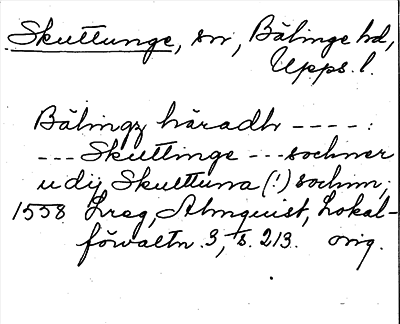 Skuttunge, sn, Bälinge hd,
Upps. l.
Bälingz häradh ----:
--- Skuttinge --- sochner
udij Skuttuna (!) sochnn;
1558 Lreg, Almquist, Lokal-
förvaltn. 3, s. 213. orig.